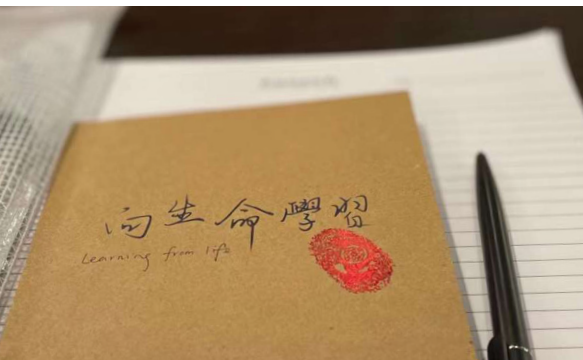 向生命學習
Learning from life